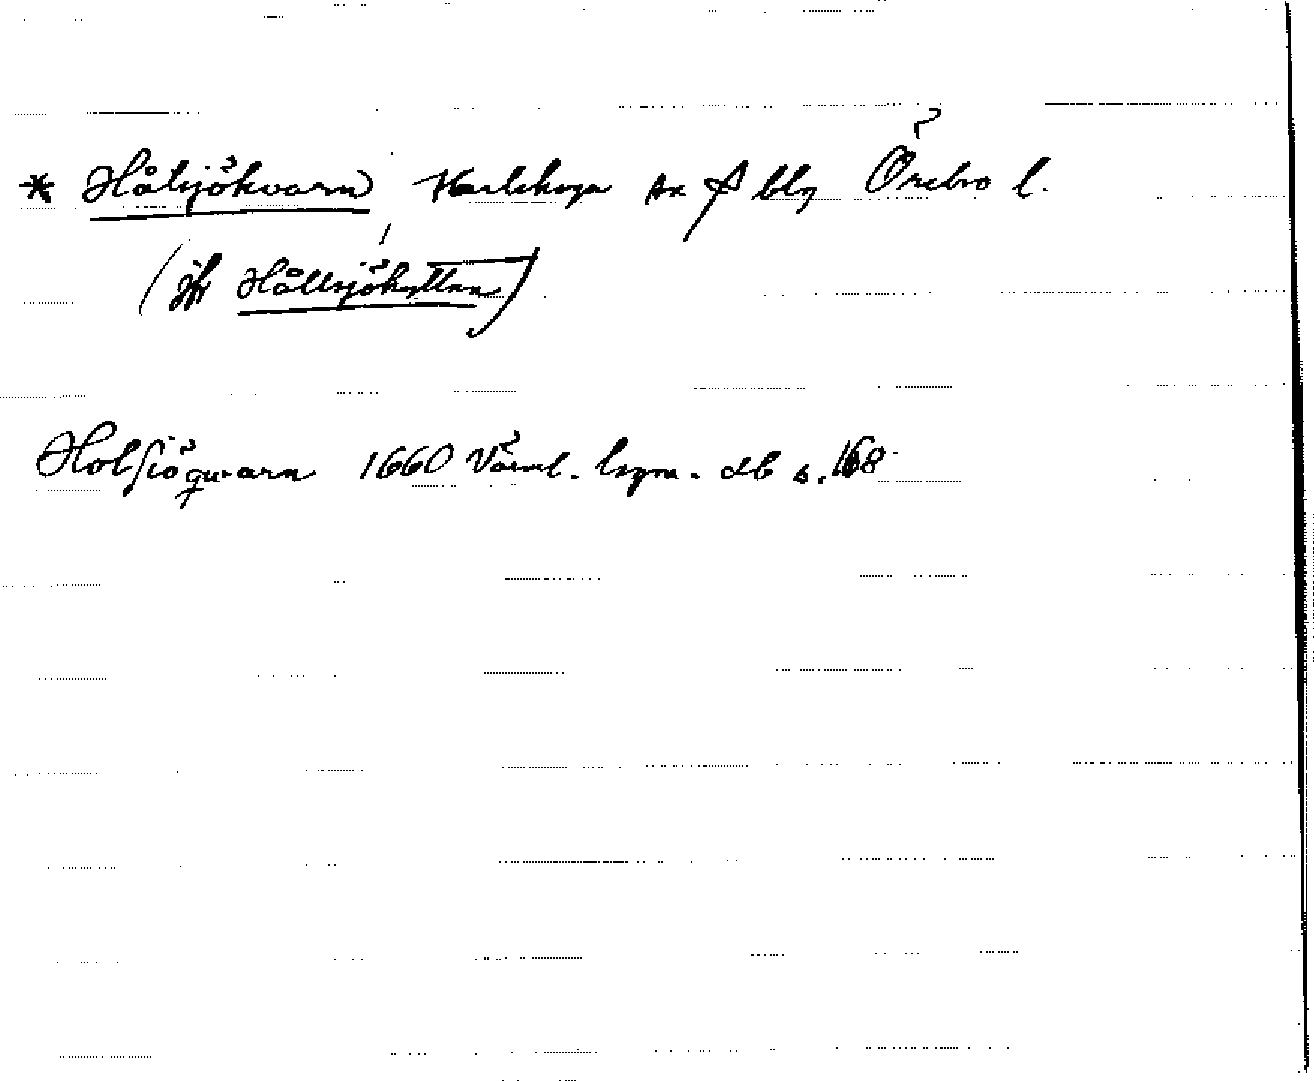 * Hålsjökvarn Karlskoga sn f blg Örebro l.
(jfr Hållsjöhyttan)
Holsiöquarn 1660 Värml. lnsm. db s. 168